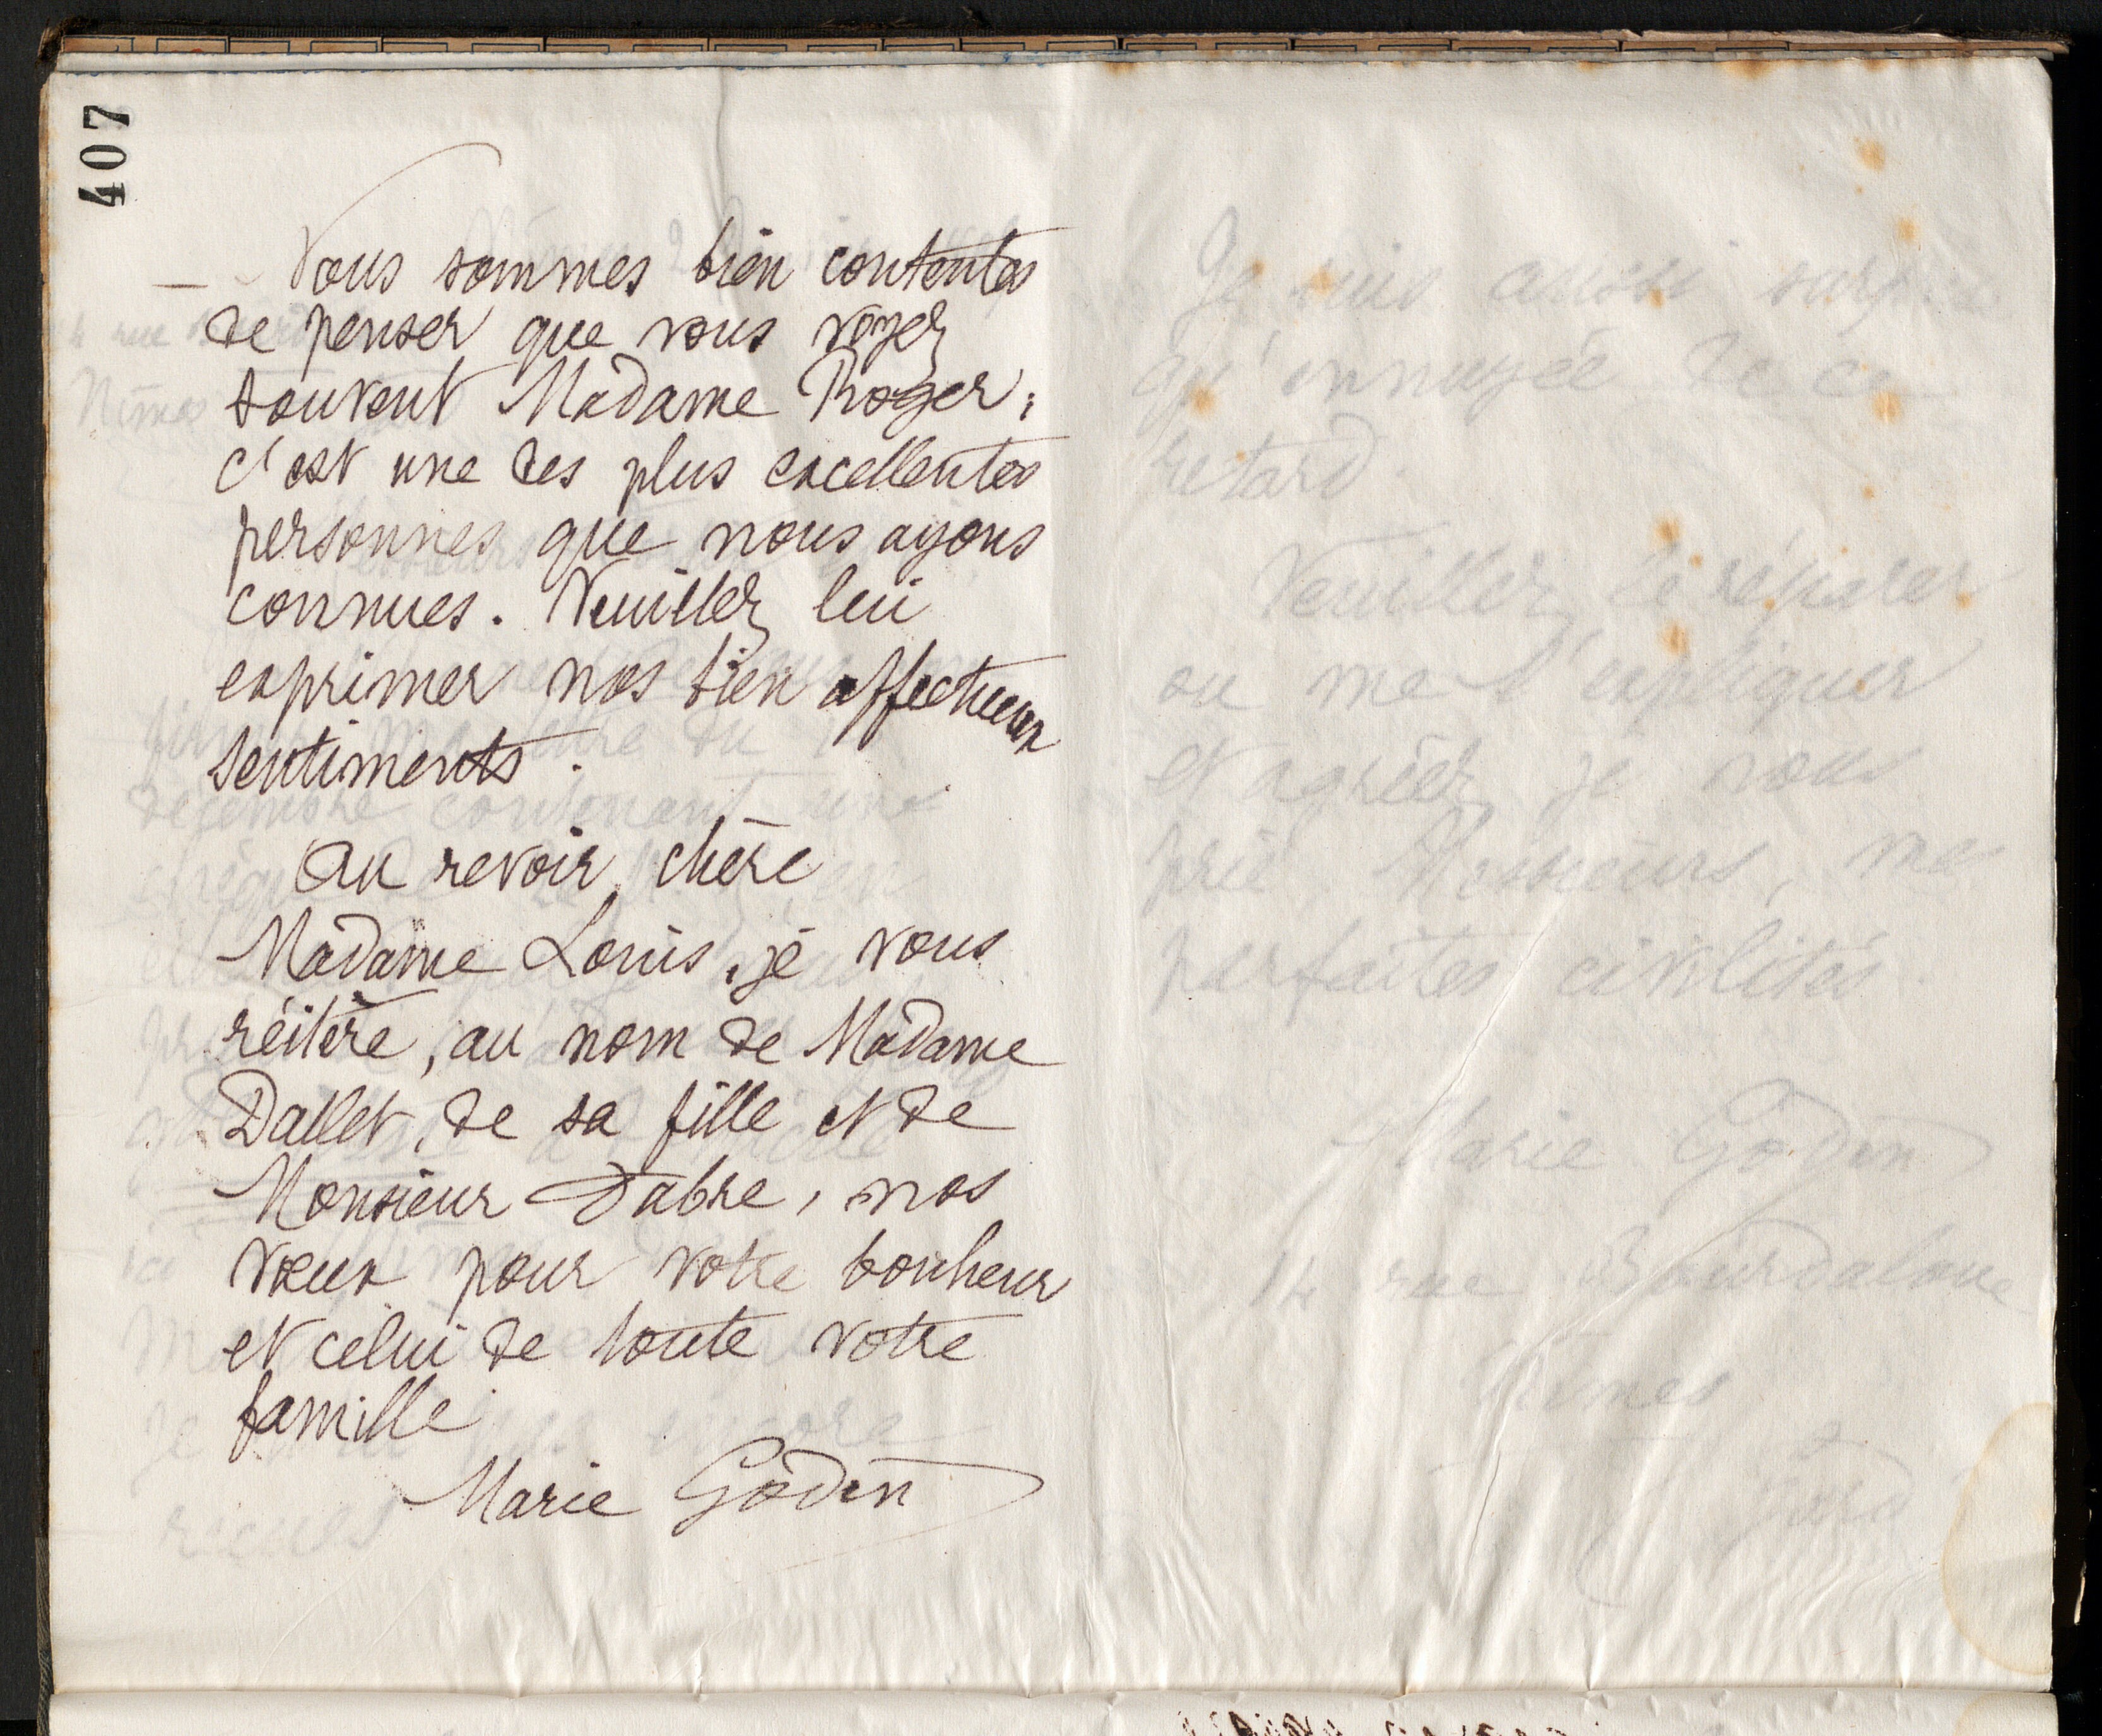 407
Nous sommes bien contentes
de penser que vous voyez
souvent Madame Roger ;
c'est une des plus excellentes
personnes que nous ayons
connues. Veuillez lui
exprimer nos bien affectueux
sentiments.
Au revoir, chère
Madame Louis, je vous
réitère, au nom de Madame
Dallet, de sa fille et de
Monsieur Fabre, nos
vœux pour votre bonheur
et celui de toute votre
famille
Marie Godin
Je suis aussi surprise
qu'ennuyée de ce
retard.
Veuillez le réparer
ou me l'expliquer
et agréez je vous
prie Messieurs, mes
parfaites civilités.
Marie Godin
14 rue Bourdaloue
Nîmes
Gard